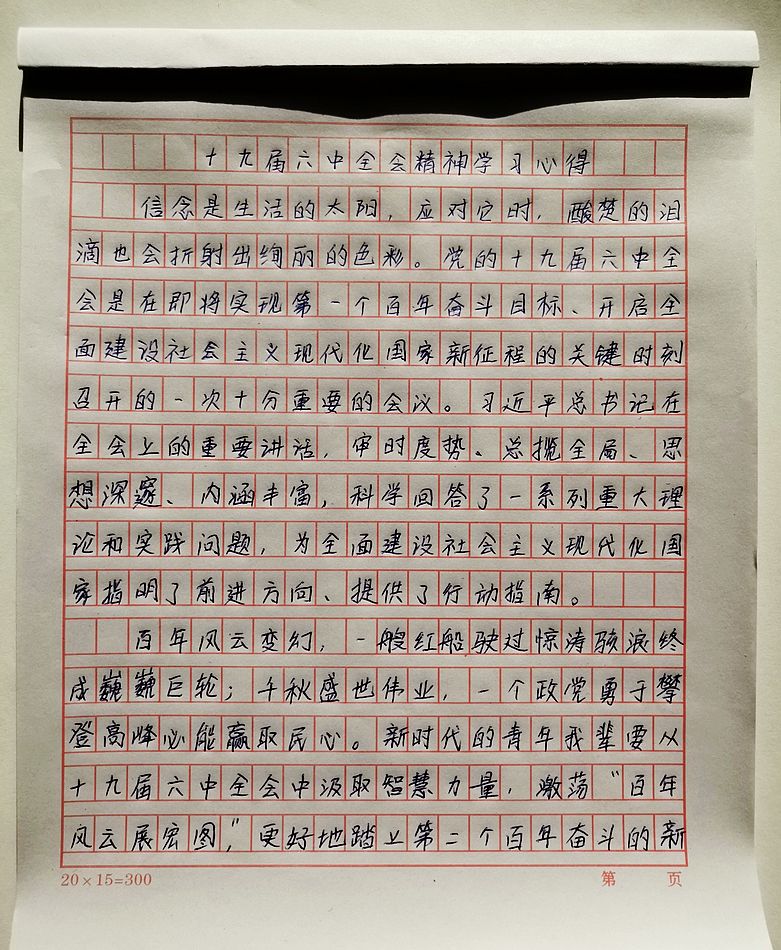 十九届六中全会精神学习心得
信念是生活的太阳，应对它时，酸楚的泪
滴也会折射出绚丽的色彩。党的十九届六中全
会是在即将实现第一个百年奋斗目标、开启全
面建设社会主义现代化国家新征程的关键时刻
召开的一次十分重要的会议。习近平总书记在
全会上的重要讲话，审时度势、总揽全局、思
想深邃、内涵丰富，科学回答了一系列重大理
论和实践问题，为全面建设社会主义现代化国
家指明了前进方向、提供了行动指南。
百年风云变幻，一艘红船驶过惊涛骇浪终
成巍巍巨轮；千秋盛世伟业，一个政党勇于攀
登高峰必能赢取民心。新时代的青年我辈要从
十九届六中全会中汲取智慧力量，激荡“百年
风云展宏图，”更好地踏上第二个百年奋斗的新
20×15=300 第 页